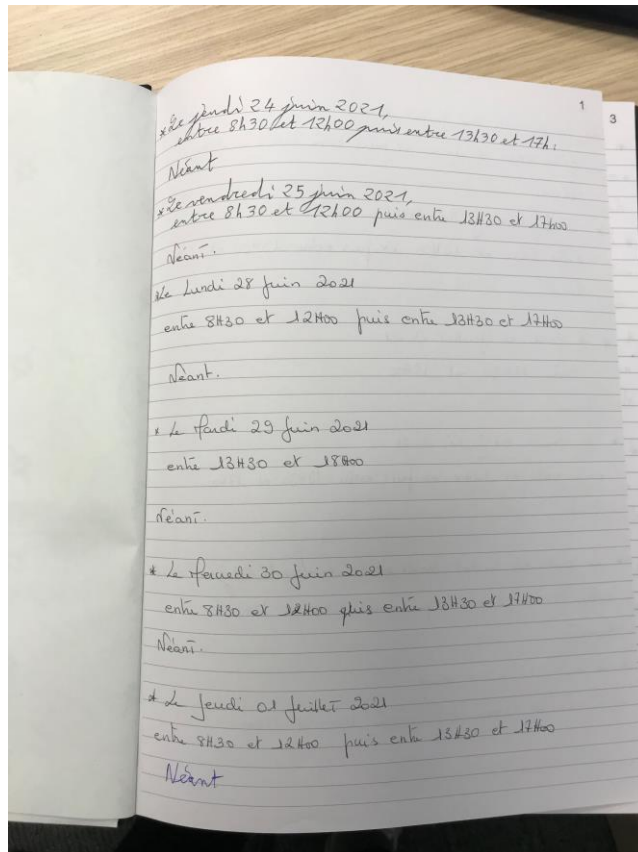 1
3
* Le jeudi 24 juin 2021,
entre 8h30 et 12h00 puis entre 13h30 et 17h.
Néant
* Le vendredi 25 juin 2021,
entre 8h30 et 12h00 puis entre 13H30 et 17h00
Néant.
* Le Lundi 28 juin 2021
entre 8H30 et 12H00 puis entre 13H30 et 17H00
Néant.
* Le Mardi 29 juin 2021
entre 13H30 et 18H00
Néant.
* Le Mercredi 30 juin 2021
entre 8H30 et 12H00 puis entre 13H30 et 17H00
Néant.
* Le Jeudi 01 juillet 2021
entre 8H30 et 12H00 puis entre 13H30 et 17H00
Néant